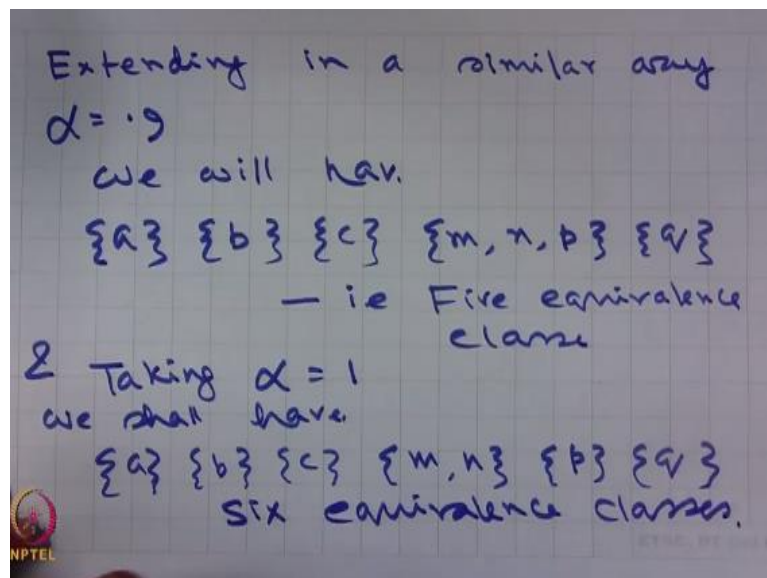 Extending in a similar way
α = .9
we will hav.
{a} {b} {c} {m, n, p} {q}
— ie Five equivalence
classe
& Taking α = 1
we shall have.
{a} {b} {c} {m, n} {p} {q}
six equivalence classes.
NPTEL